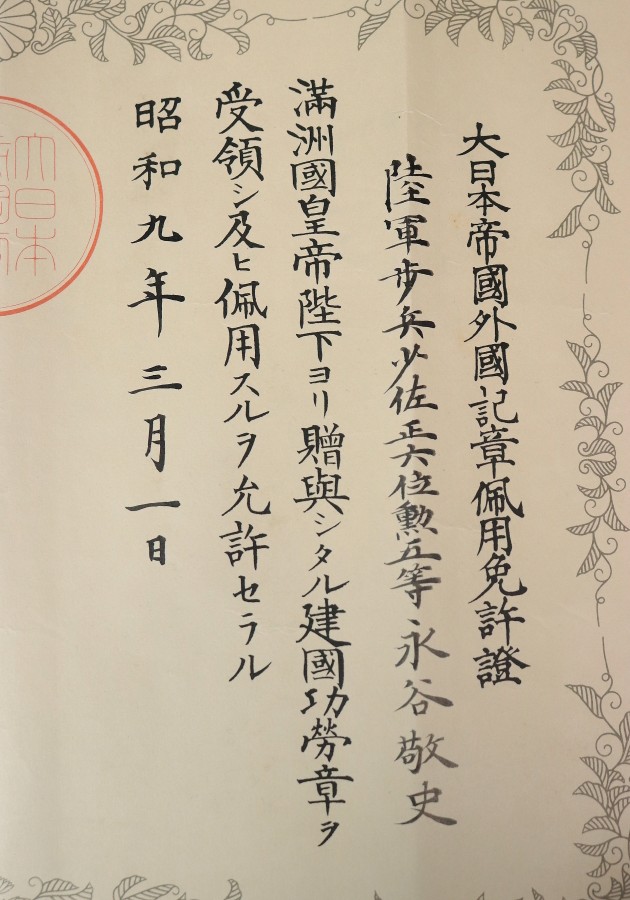 大日本帝國外國記章佩用免許證
陸軍歩兵少佐正六位勲五等永谷敬史
滿洲國皇帝陛下ヨリ贈與シタル建國功勞章ヲ
受領シ及ヒ佩用スルヲ允許セラル
昭和九年三月一日
大日本